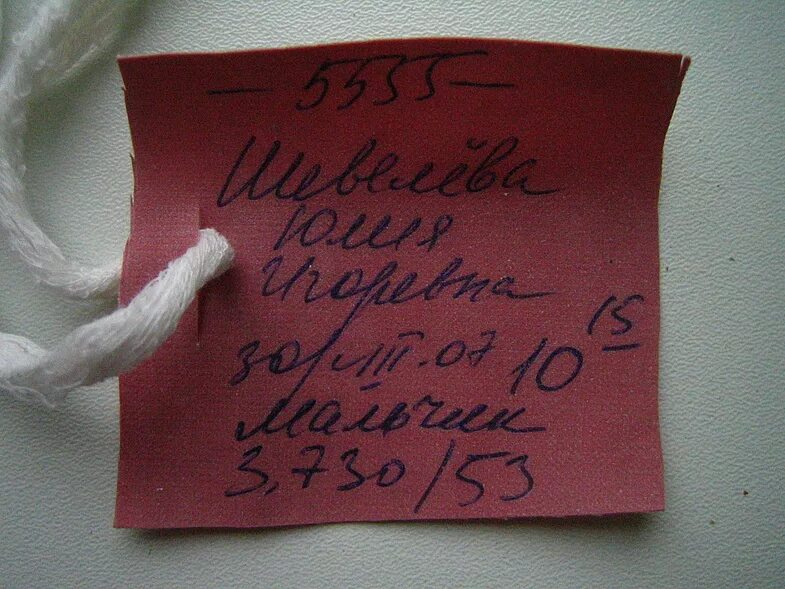 — 5535 —
Шевелёва
Юлия
Игоревна
30/III.07 10 15
мальчик
3,730/53